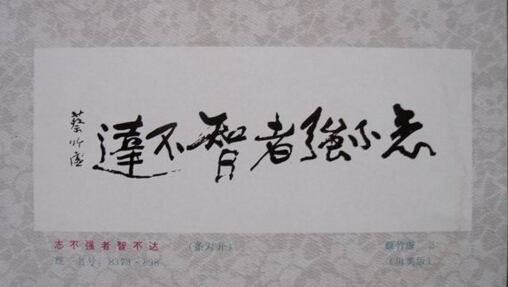 志不強者智不達
蔡竹虚
志不强者智不达 (条对开) 蔡竹虚 书
统一书号：8373·898 (川美版)